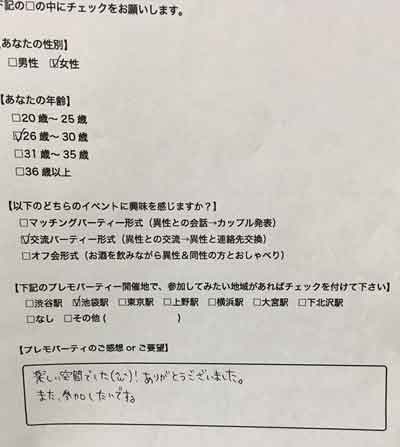 下記の□の中にチェックをお願いします。
あなたの性別】
□男性 ☑女性
【あなたの年齢】
□20歳～25歳
☑26歳～30歳
□31歳～35歳
□36歳以上
【以下のどちらのイベントに興味を感じますか？】
□マッチングパーティー形式（異性との会話→カップル発表）
☑交流パーティー形式（異性との交流→異性と連絡先交換）
□オフ会形式（お酒を飲みながら異性＆同性の方とおしゃべり）
【下記のプレモパーティー開催地で、参加してみたい地域があればチェックを付けて下さい】
□渋谷駅 ☑池袋駅 □東京駅 □上野駅 □横浜駅 □大宮駅 □下北沢駅
□なし □その他（ ）
【プレモパーティのご感想 or ご要望】
楽しい空間でした(^^)！ありがとうございました。
また、参加したいですね